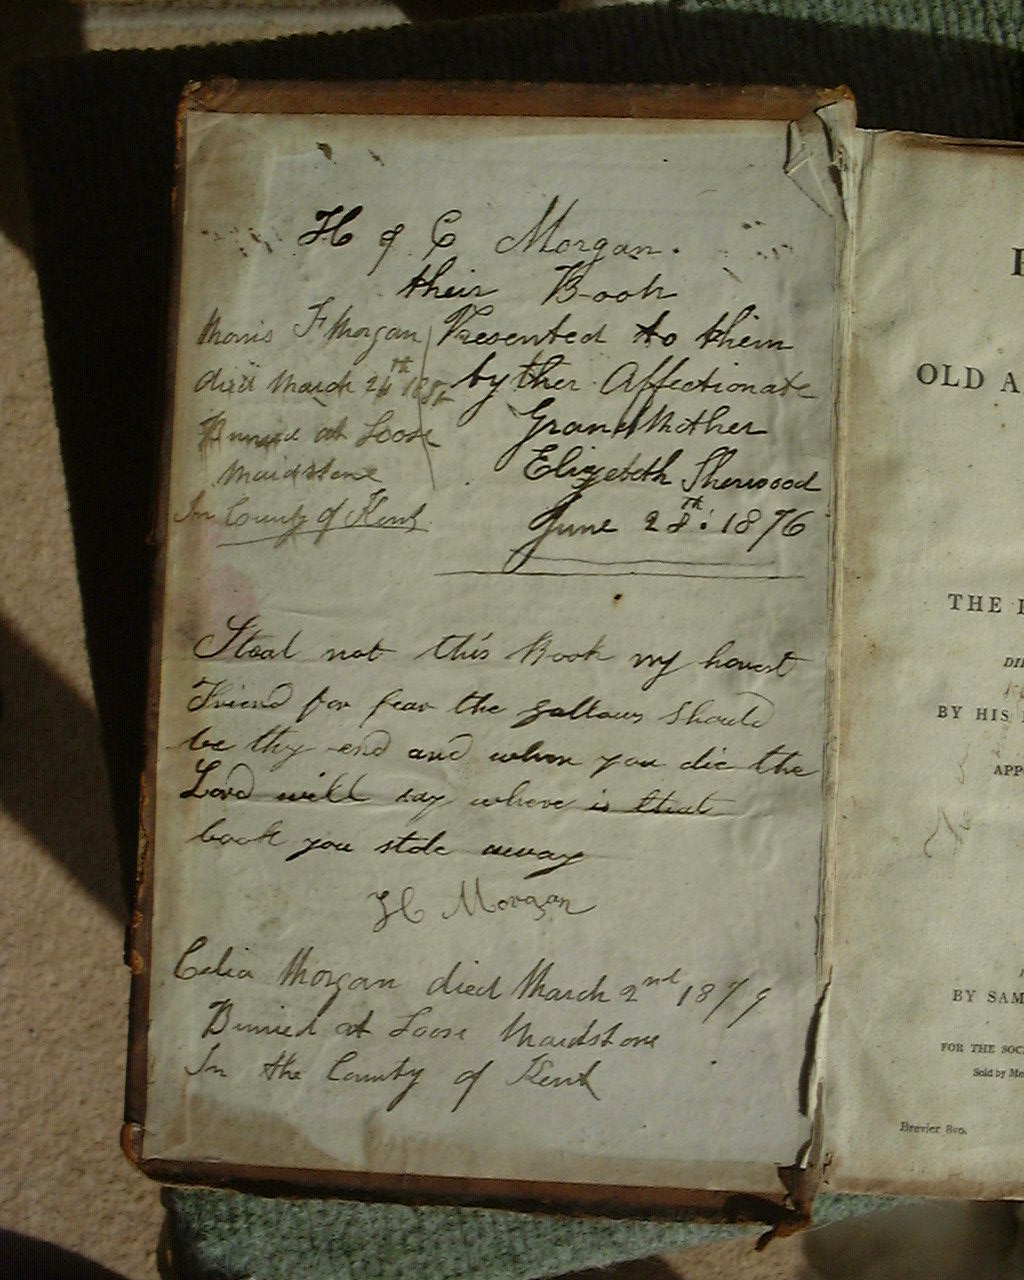 H & C Morgan.
their Book
Presented to them
by ther Affectionate
Grand Mother
Elizebeth Sherwood
June 28th: 1876
Morris F Morgan
died March 24th 1882
Burried at Loose
Maidstone
In County of Kent.
Steal not this Book my honest
Friend for fear the gallows should
be thy end and when you die the
Lord will say where is that
book you stole away
H Morgan
Celia Morgan died March 2nd 1879
Burried at Loose Maidstone
In the County of Kent
OLD A
THE
BY HIS
APP
BY SAM
FOR THE SOC
Sold by
Brevier 8vo.